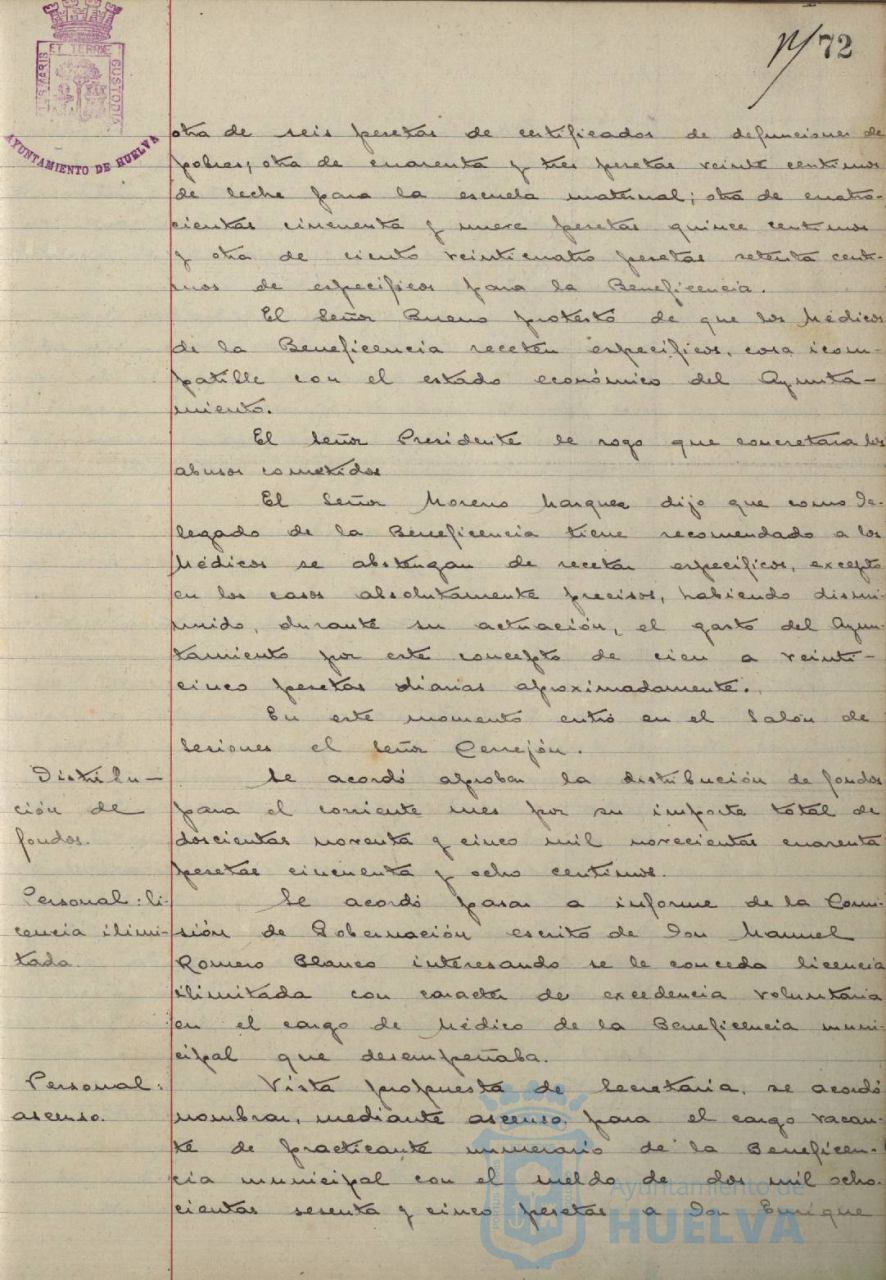 72
ET TERRÆ
CUSTODIA
AYUNTAMIENTO DE HUELVA
otra de seis pesetas de certificados de defunciones de
pobres; otra de cuarenta y tres pesetas veinte centimos
de leche para la escuela maternal; otra de cuatro-
cientas cincuenta y nueve pesetas quince centimos
y otra de ciento veinticuatro pesetas setenta centi-
mos de específicos para la Beneficencia.
El Señor Bueno protestó de que los Médicos
de la Beneficencia receten específicos, cosa icom-
patible con el estado económico del Ayunta-
miento.
El Señor Presidente le rogo que concretara los
abusos cometidos
El Señor Moreno Marquez dijo que como De-
legado de la Beneficencia tiene recomendado a los
Médicos se abstengan de recetar específicos, excepto
en los casos absolutamente precisos, habiendo dismi-
nuido, durante su actuación, el gasto del Ayun-
tamiento por este concepto de cien a veinti-
cinco pesetas diarias aproximadamente.
En este momento entró en el Salón de
Sesiones el Señor Cerrejón.
Distribu-
ción de
fondos.
Se acordó aprobar la distribución de fondos
para el corriente mes por su importe total de
doscientas noventa y cinco mil novecientas cuarenta
pesetas cincuenta y ocho centimos.
Personal: li-
cencia ilimi-
tada.
Se acordó pasar a informe de la Comi-
sión de Gobernación escrito de Don Manuel
Romero Blanco interesando se le conceda licencia
ilimitada con caracter de excedencia voluntaria
en el cargo de Médico de la Beneficencia muni-
cipal que desempeñaba.
Personal:
ascenso.
Vista propuesta de Secretaria, se acordó
nombrar, mediante ascenso, para el cargo vacan-
te de practicante numerario de la Beneficen-
cia municipal con el sueldo de dos mil ocho-
cientas sesenta y cinco pesetas a Don Enrique
Ayuntamiento de
HUELVA